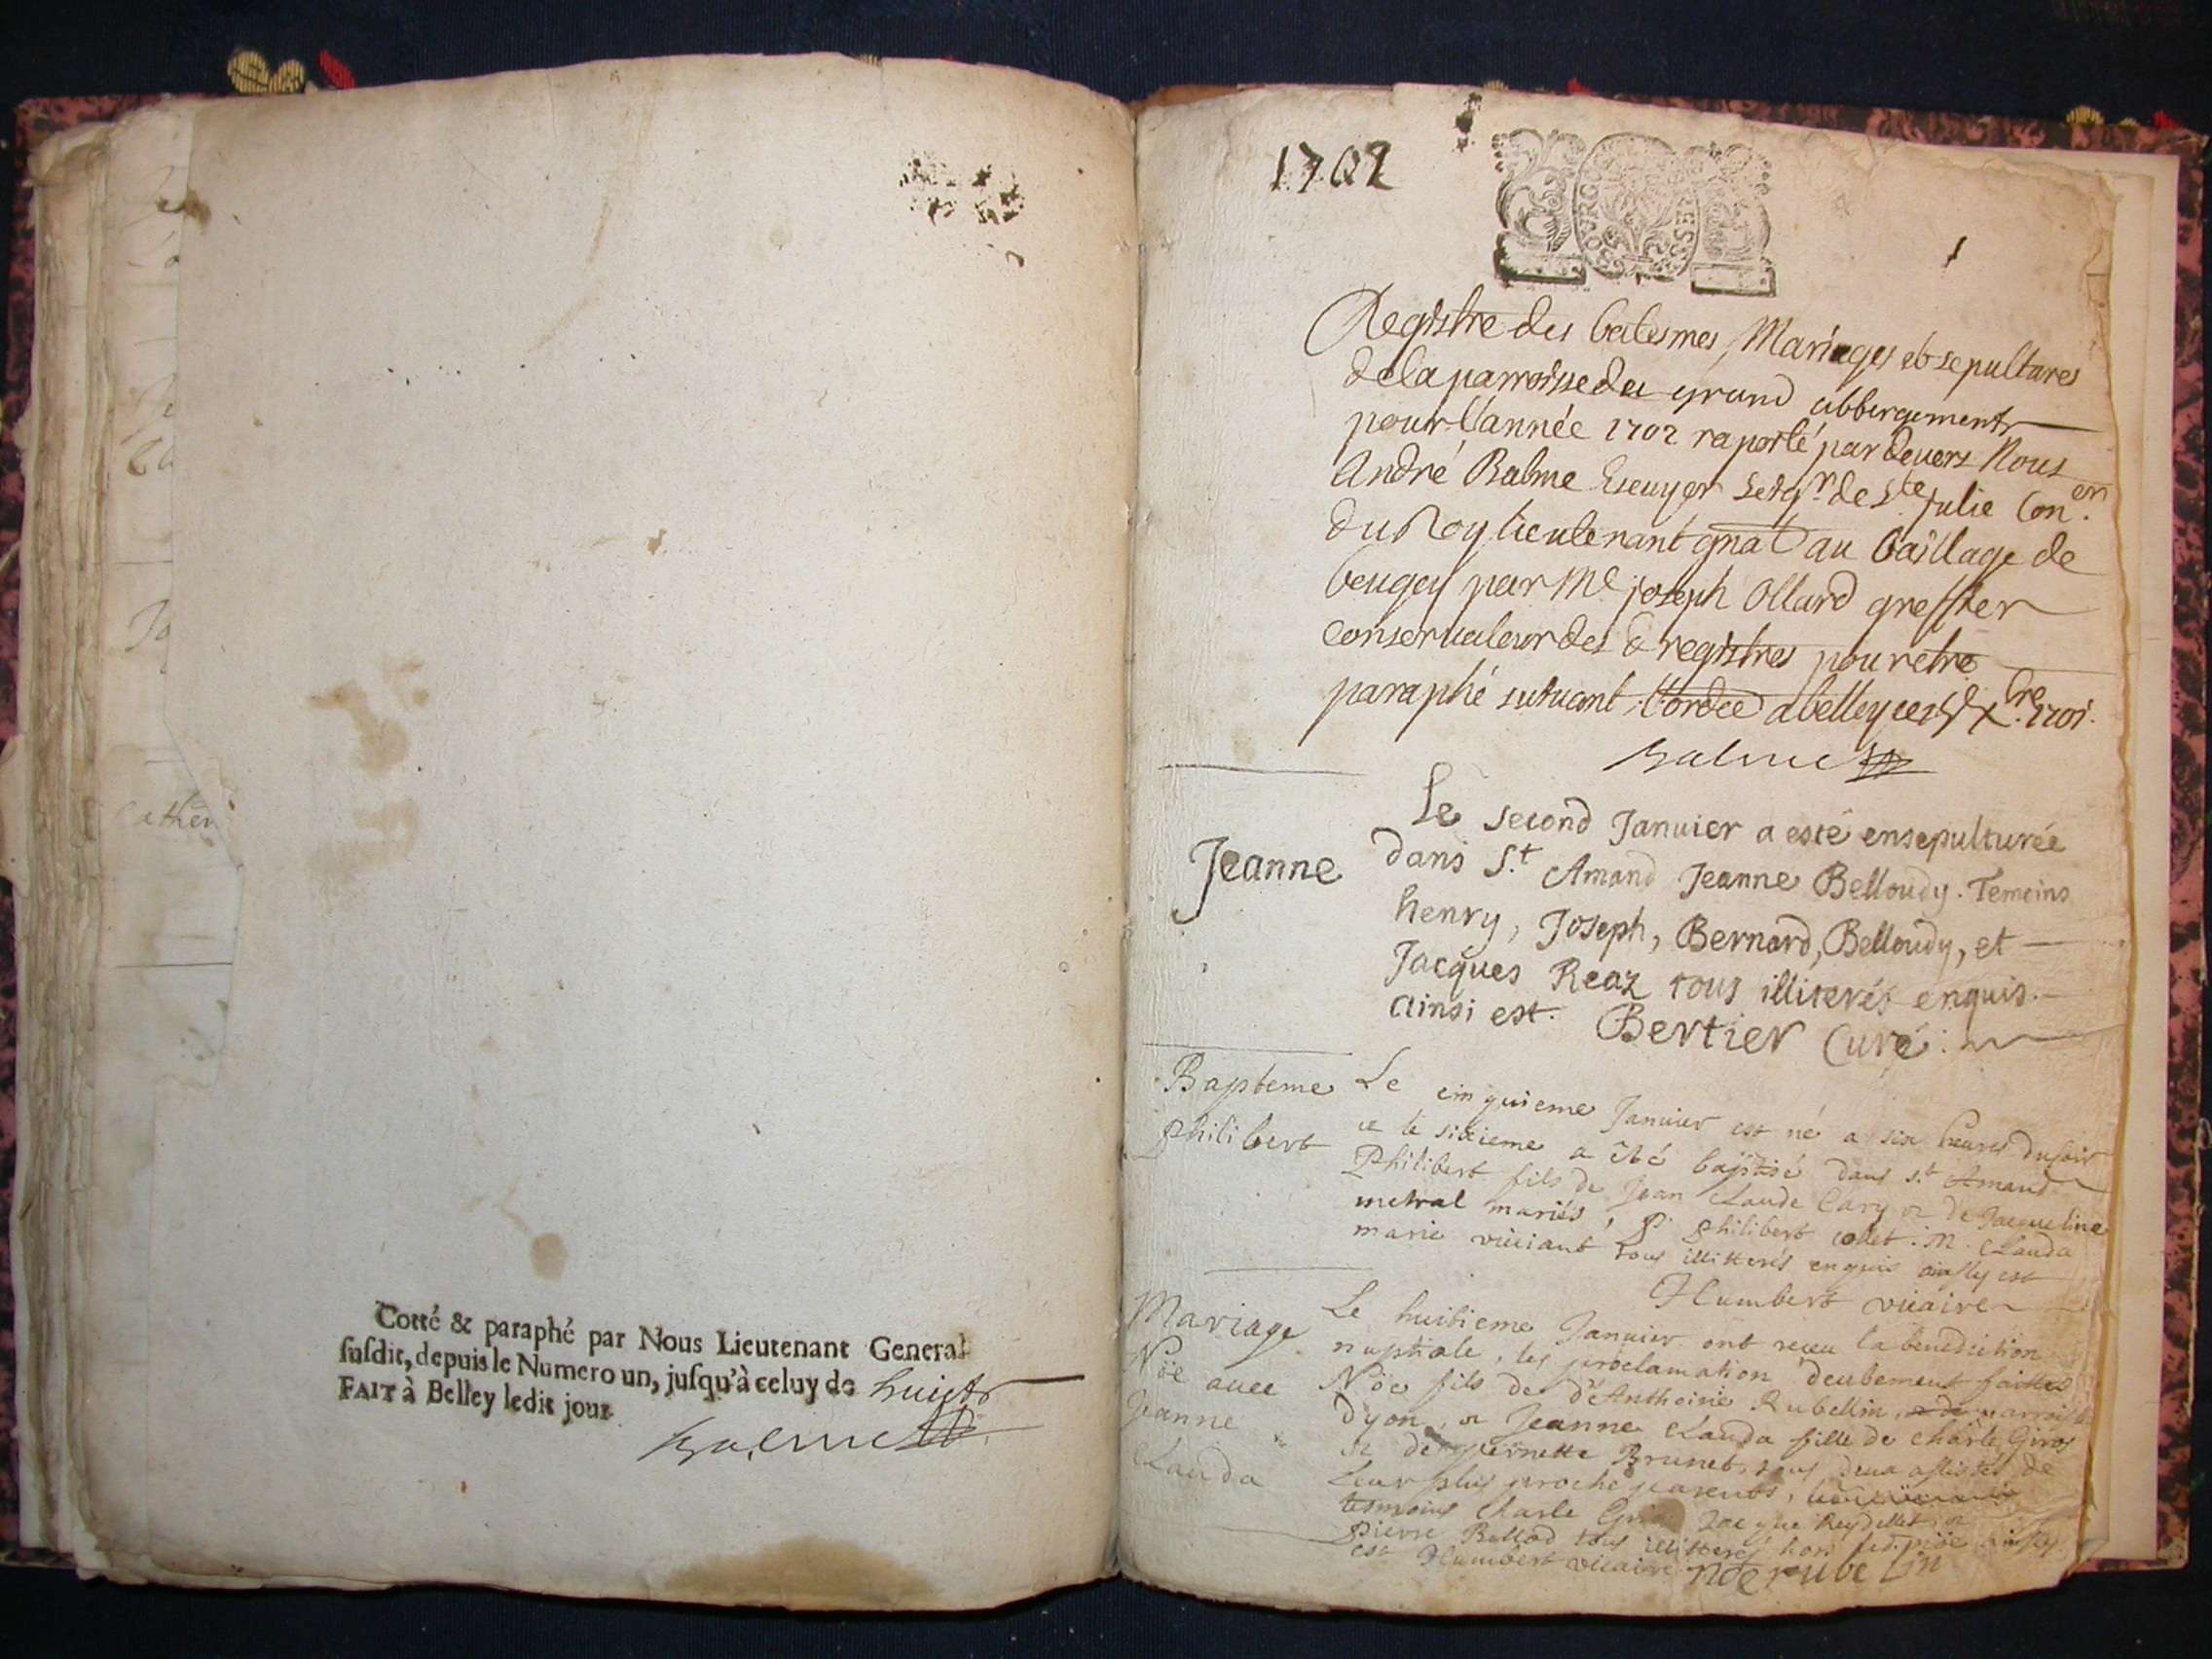 Cotté & paraphé par Nous Lieutenant General
susdit, depuis le Numero un, jusqu'à celuy de huict
FAIT à Belley ledit jour
Balme
1702
BOURG
BRESSE
1
Registre des batesmes, Mariages et sepultures
de la parroisse du grand abbergement
pour l'année 1702 raporté par devers Nous
André Balme Escuyer seigr. de Ste Julie Coner.
du Roy lieutenant gnal au baillage de
beugey par Me joseph Ollard greffier
conservateur des d registres pour etre
paraphé suivant l'ordce a belley ce xbre 1701.
Balme
Jeanne
Le second Januier a esté ensepulturée
dans St. Amand Jeanne Belloudy. Temoins
henry, Joseph, Bernard, Belloudy, et
Jacques Reaz tous illiterés enquis.
ainsi est. Bertier Curé.
Bapteme
philibert
Le cinquieme Januier est né a six heures du soir
et le sixieme a été baptisé dans St. Amand
Philibert fils de Jean Claude Cary et de Jacqueline
metral mariés, P. philibert collet. M. Clauda
marie tous illitterés enquis ainsy est
Humbert vicaire
Mariage
Nöe avec
Jeanne
Clauda
Le huitieme Januier ont receu la benediction
nuptiale, les proclamation deubement faittes
Nöe fils de d'Anthoine Rubellin,
dyon, et Jeanne Clauda fille de Charle Giros
et de pernette Brunet, tous deux assistés de
Leur plus proche parents,
tesmoins Charle Jacque Reydellet et
Pierre Ballod tous illitteré hors led. nöe ainsy
est Humbert vicaire noe rubelin